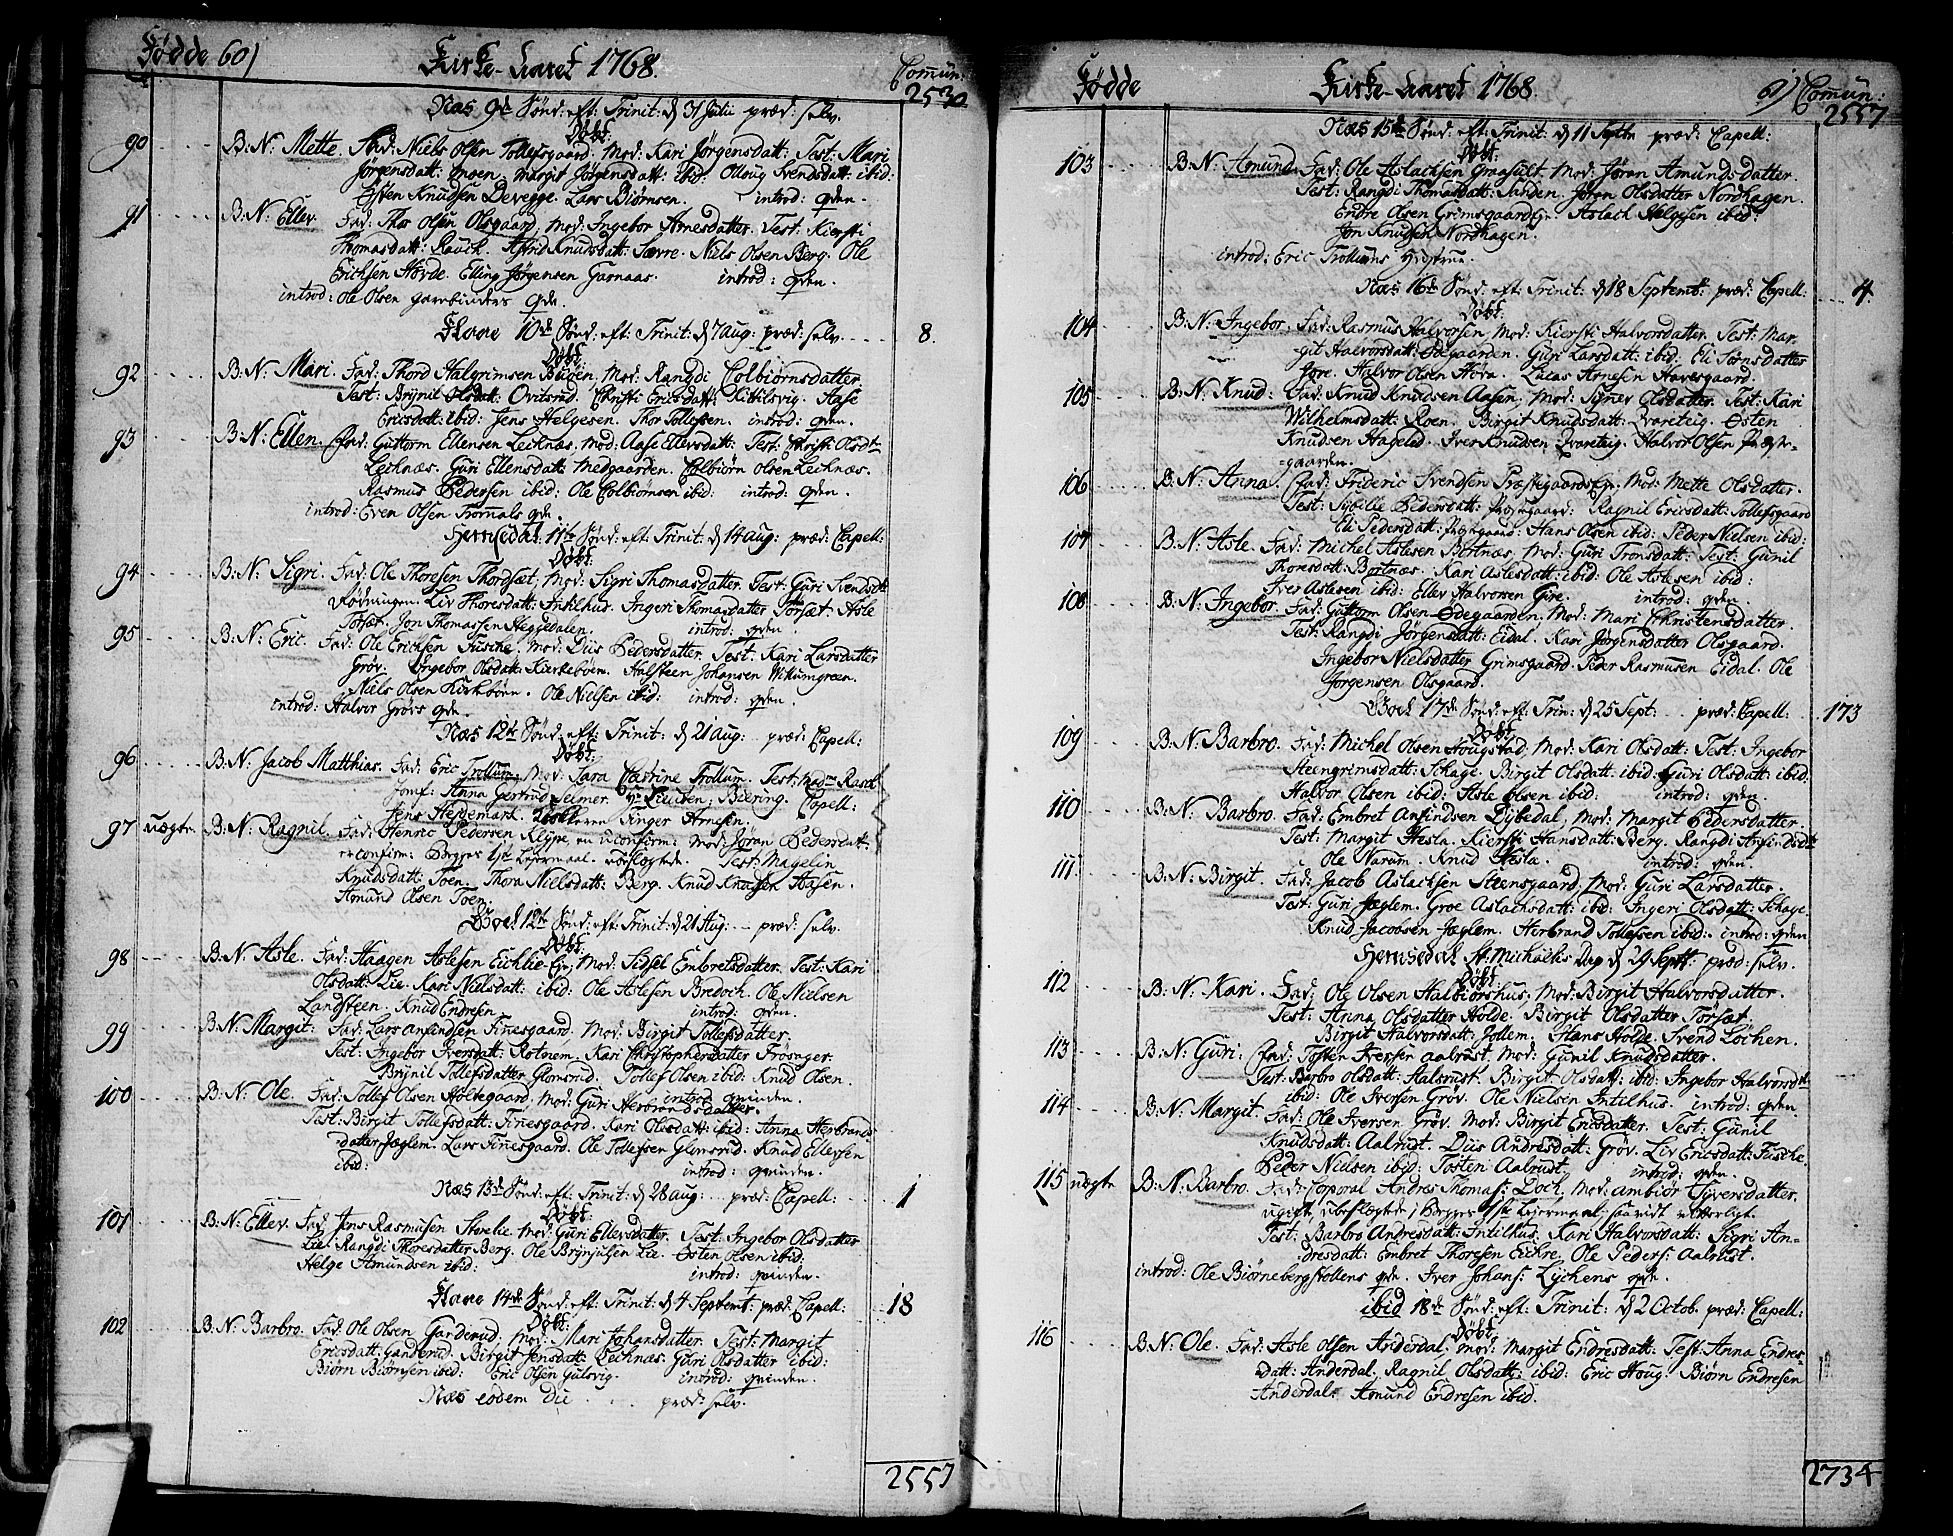 Fødde 60) Kirke-Aaret 1768. Comun:
2530
Næs 9de Sønd: eft: Trinit: d 31 Julii præd: selv.
Døbt:
90 B:N: Mette. Fad: Niels Olsen Tollefsgaard. Mod: Kari Jørgensdatt: Test: Mari
Jørgensdatt: Moen. Margit Jørgensdatt: ibid: Olloug Svendsdatt: ibid:
Esten Knudsen Devegge. Lars Biørnsen. introd: qvden.
91 B:N: Ellev. Fad: Thor Olsen Olsgaard, Mod: Ingebor Arnesdatter. Test: Kiersti
Thomasdatt: Rauck. Astrid Knudsdatt: Sævre. Niels Olsen Berg. Ole
Erichsen Hovde. Elling Jørgensen Garnaas. introd: qvden.
introd: Ole Olsen Garnbinders qvden.
Flaae 10de Sønd: eft: Trinit: d 7 Aug: præd: selv. 8.
Døbt
92 B:N: Mari. Fad: Thord Halgrimsen Bugen, Mod: Rangdi Colbiørnsdatter.
Test: Brynil Olsdatt: Ovitsrud. Christi Ericsdatt: Kittilsvig. Aase
Ericsdatt: ibid: Jens Helgesen. Thor Tollefsen. introd: qvden.
93 B:N: Ellen. Fad: Guttorm Ellensen Leiknæs. Mod: Aase Ellevsdatt: Test: Christi Olsdtr
Lecknæs. Guri Ellensdatt: Medgaarden. Colbiørn Olsen Lecknæs.
Rasmus Pedersen ibid: Ole Colbiørnsen ibid: introd: qvden.
introd: Even Olsen Trommals qvden.
Hemsedal 11te Sønd: eft: Trinit: d 14 Aug: præd: Capell:
Døbt:
94 B:N: Sigri. Fad: Ole Thoresen Thordsæt, Mod: Sigri Thomasdatter. Test: Guri Svendsdtr
Rødningen. Liv Thoresdatt: Intilhus. Ingeri Thomasdatter Torsæt. Asle
Torsæt. Jon Thomassen Heggedalen. introd: qvden.
95 B:N: Eric. Fad: Ole Erichsen Fusche. Mod: Diis Pedersdatter. Test: Kari Larsdatter
Grøv. Ingebor Olsdatt: Kierkebøen. Halsteen Johansen Wikumgreen.
Niels Olsen Kirkbøen. Ole Nielsen ibid: introd: qvden.
introd: Halvor Grøvs qvden.
Næs 12te Sønd: eft: Trinit: d 21 Aug: præd: Capell:
Døbt:
96 B:N: Jacob Matthias. Fad: Eric Trollum, Mod: Sara Cathrine Trollum. Test: Madme Rasch
Jomf: Anna Gertrud Selmer. Hr Lieuten: Biering. Capell:
Jens Hedemark. Arne Ringer Arnesen.
97 uægte B:N: Ragnil. Fad: Henric Pedersen Kleppe, en uconfirm: Mod: Jøran Pedersdatt:
confirm: Begges 1ste Leyermaal. ubeslegtede. Test: Magelin
Knudsdatt: Toen. Thora Nielsdatt: Berg. Knud Knudsen Aasen.
Amund Olsen Toen.
Goel 12te Sønd: eft: Trinit: d 21 Aug: præd: selv.
Døbt:
98 B:N: Asle. Fad: Haagen Aslesen Eichlie-Eje, Mod: Sidsel Embretsdatter. Test: Kari
Olsdatt: Lie. Kari Nielsdatt: ibid: Ole Aslesen Bredoch. Ole Nielsen
Landsteen. Knud Endresen. introd: qvden.
99 B:N: Margit: Fad: Lars Anfindsen Finesgaard, Mod: Birgit Tollefsdatter.
Test: Ingebor Iversdatt: Rotnem. Kari Christophersdatter Frøsager.
Brynil Tollefsdatter Glomsrud. Tollef Olsen ibid: Knud Olsen.
introd: qvinden.
100 B:N: Ole. Fad: Tollef Olsen Holtegaard, Mod: Guri Herbrandsdatter.
Test: Birgit Tollefsdatt: Finesgaard. Kari Olsdatt: ibid: Anna Herbrands
datter Jæglem. Lars Finesgaard. Ole Tollefsen Glomsrud. Knud Ellefsen
ibid: introd: qvinden.
Næs 13de Sønd: eft: Trinit: d 28 Aug: præd: Capell: 1
Døbt:
101 B:N: Ellev. Fad: Jens Rasmusen Storelie. Mod: Guri Ellevsdatter. Test: Ingebor Olsdatter
Lie. Rangdi Thoresdatter Berg. Ole Brynjulsen Lie. Østen Olsen ibid:
Helge Amundsen ibid: introd: qvinden.
Flaae 14de Sønd: eft: Trinit: d 4 Septemt: præd: Capell: 18
Døbt:
102 B:N: Barbro. Fad: Ole Olsen Garderud. Mod: Mari Johansdatter. Test: Margit
Ericsdatt: Ganderud. Birgit Jensdatt: Lecknæs. Guri Olsdatter ibid:
Biørn Biørnsen ibid: Eric Olsen Gulsvig. introd: qvinden.
Næs eodem Die præd: selv.
2557
Fødde Kirke-Aaret 1768. 61) Comun:
2557
Næs 15de Sønd: eft: Trinit: d 11 Septbr præd: Capell:
Døbt:
103 B:N: Amund. Fad: Ole Aslachsen Graasilt. Mod: Jøran Amundsdatter.
Test: Rangdi Thomasdatt: Sanden. Jøran Olsdatter Nordhagen.
Endre Olsen Grimsgaards Ej: Aslach Helgesen ibid:
Jon Knudsen Nordhagen.
introd: Eric Trollums Hustru.
Næs 16de Sønd: eft: Trinit: d 18 Septemt: præd: Capell: 4
Døbt
104 B:N: Ingebor. Fad: Rasmus Halvorsen, Mod: Kiersti Halvorsdatter. Test: Mar-
git Halvorsdatt: Ødegaarden. Guri Larsdatt: ibid: Eli Tornsdatter
Gire. Halvor Olsen Hova. Lucas Arnesen Haversgaard.
105 B:N: Knud: Fad: Knud Knudsen Aasen, Mod: Signer Olsdatter. Test: Kari
Wilhelmsdatt: Roen. Birgit Knudsdatt: Qvareteig. Østen
Knudsen Hageled. Iver Knudsen Qvareteig. Halvor Olsen Præste-
gaarden.
106 B:N: Anna. Fad: Frideric Svendsen Præstegaards Eje. Mod: Mette Olsdatter.
Test: Sybille Pedersdatt: Præstgaard: Ragnil Ericsdatt: Tollefsgaard
Eli Pedersdatt: Præstgaard: Hans Olsen ibid: Peder Nielsen ibid:
107 B:N: Asle. Fad: Michel Aslesen Bortnæs, Mod: Guri Tronsdatt: Test: Gunil
Thronsdatt: Bortnæs. Kari Aslesdatt: ibid: Ole Aslesen ibid:
Iver Aslesen ibid: Ellev Halvorsen Gire. introd: qvden.
108 B:N: Ingebor. Fad: Guttorm Olsen Ødegaarden. Mod: Mari Christensdatter.
Test: Rangdi Jørgensdatt: Eidal. Kari Jørgensdatter Olsgaard.
Ingebor Nielsdatter Grimsgaard. Peder Rasmusen Eidal. Ole
Jørgensen Olsgaard.
Goel 17de Sønd: eft: Trin: d 25 Sept: præd: Capell: 173
Døbt
109 B:N: Barbro. Fad: Michel Olsen Hougstad, Mod: Kari Olsdatt: Test: Ingebor
Steengrimsdatt: Schage. Birgit Olsdatt: ibid: Guri Olsdatt: ibid:
Halvor Olsen ibid: Asle Olsen ibid: introd: qvden.
110 B:N: Barbro. Fad: Embret Anfindsen Dybedal, Mod: Margit Pedersdatter.
Test: Margit Hesla. Kiersti Hansdatt: Berg. Rangdi Anfindsdtr
Ole Narum. Knud Hesla. introd: qvden.
111 B:N: Birgit. Fad: Jacob Aslachsen Steensgaard, Mod: Guri Larsdatter.
Test: Guri Jæglem. Groe Aslachsdatt: ibid: Ingeri Olsdatt: Schage.
Knud Jacobsen Jæglem. Herbrand Tollefsen ibid: introd: qvden
Hemsedal St. Michaelis Dag d 29 Septt: præd: selv.
Døbt
112 B:N: Kari. Fad: Ole Olsen Halbiørshus. Mod: Birgit Halvorsdatter.
Test: Anna Olsdatter Holde. Birgit Olsdatter Torsæt.
Birgit Halvorsdatt: Jollem. Hans Holde. Svend Lochen.
113 B:N: Guri. Fad: Tosten Iversen Aalrust. Mod: Gunil Knudsdatter.
Test: Barbro Olsdatt: Aalrust. Birgit Olsdatt: ibid: Ingebor Halvorsdtr
ibid: Ole Iversen Grøv. Ole Nielsen Intilhus. introd: qvden
114 B:N: Margit. Fad: Ole Iversen Grøv. Mod: Birgit Ericsdatter. Test: Gunil
Knudsdatt: Aalrust. Diis Andresdatt: Grøv. Liv Ericsdatt: Fusche.
Peder Nielsen ibid: Tosten Aalrust. introd: qvden.
115 uægte B:N: Barbro. Fad: Corporal Andres Thomas: Doch, Mod: Ambiør Syversdatter,
ugift, ubeslegtede, Begges 1ste Leyermaal,
Test: Barbro Andresdatt: Intilhus. Kari Halvorsdatt: Sigri An-
dresdatt: Embret Thoresen Eickre. Ole Peders: Aalrust.
introd: Ole Biørnebergstollens qvden. Iver Johans: Lychens qvden.
ibid 18de Sønd: eft: Trinit: d 2 Octob. præd: Capell:
Døbt
116 B:N: Ole. Fad: Asle Olsen Anderdal. Mod: Margit Endresdatt: Test: Anna Endres-
datt: Anderdal. Ragnil Olsdatt: ibid: Eric Houg. Biørn Endresen
Anderdal. Amund Endresen ibid.
2734